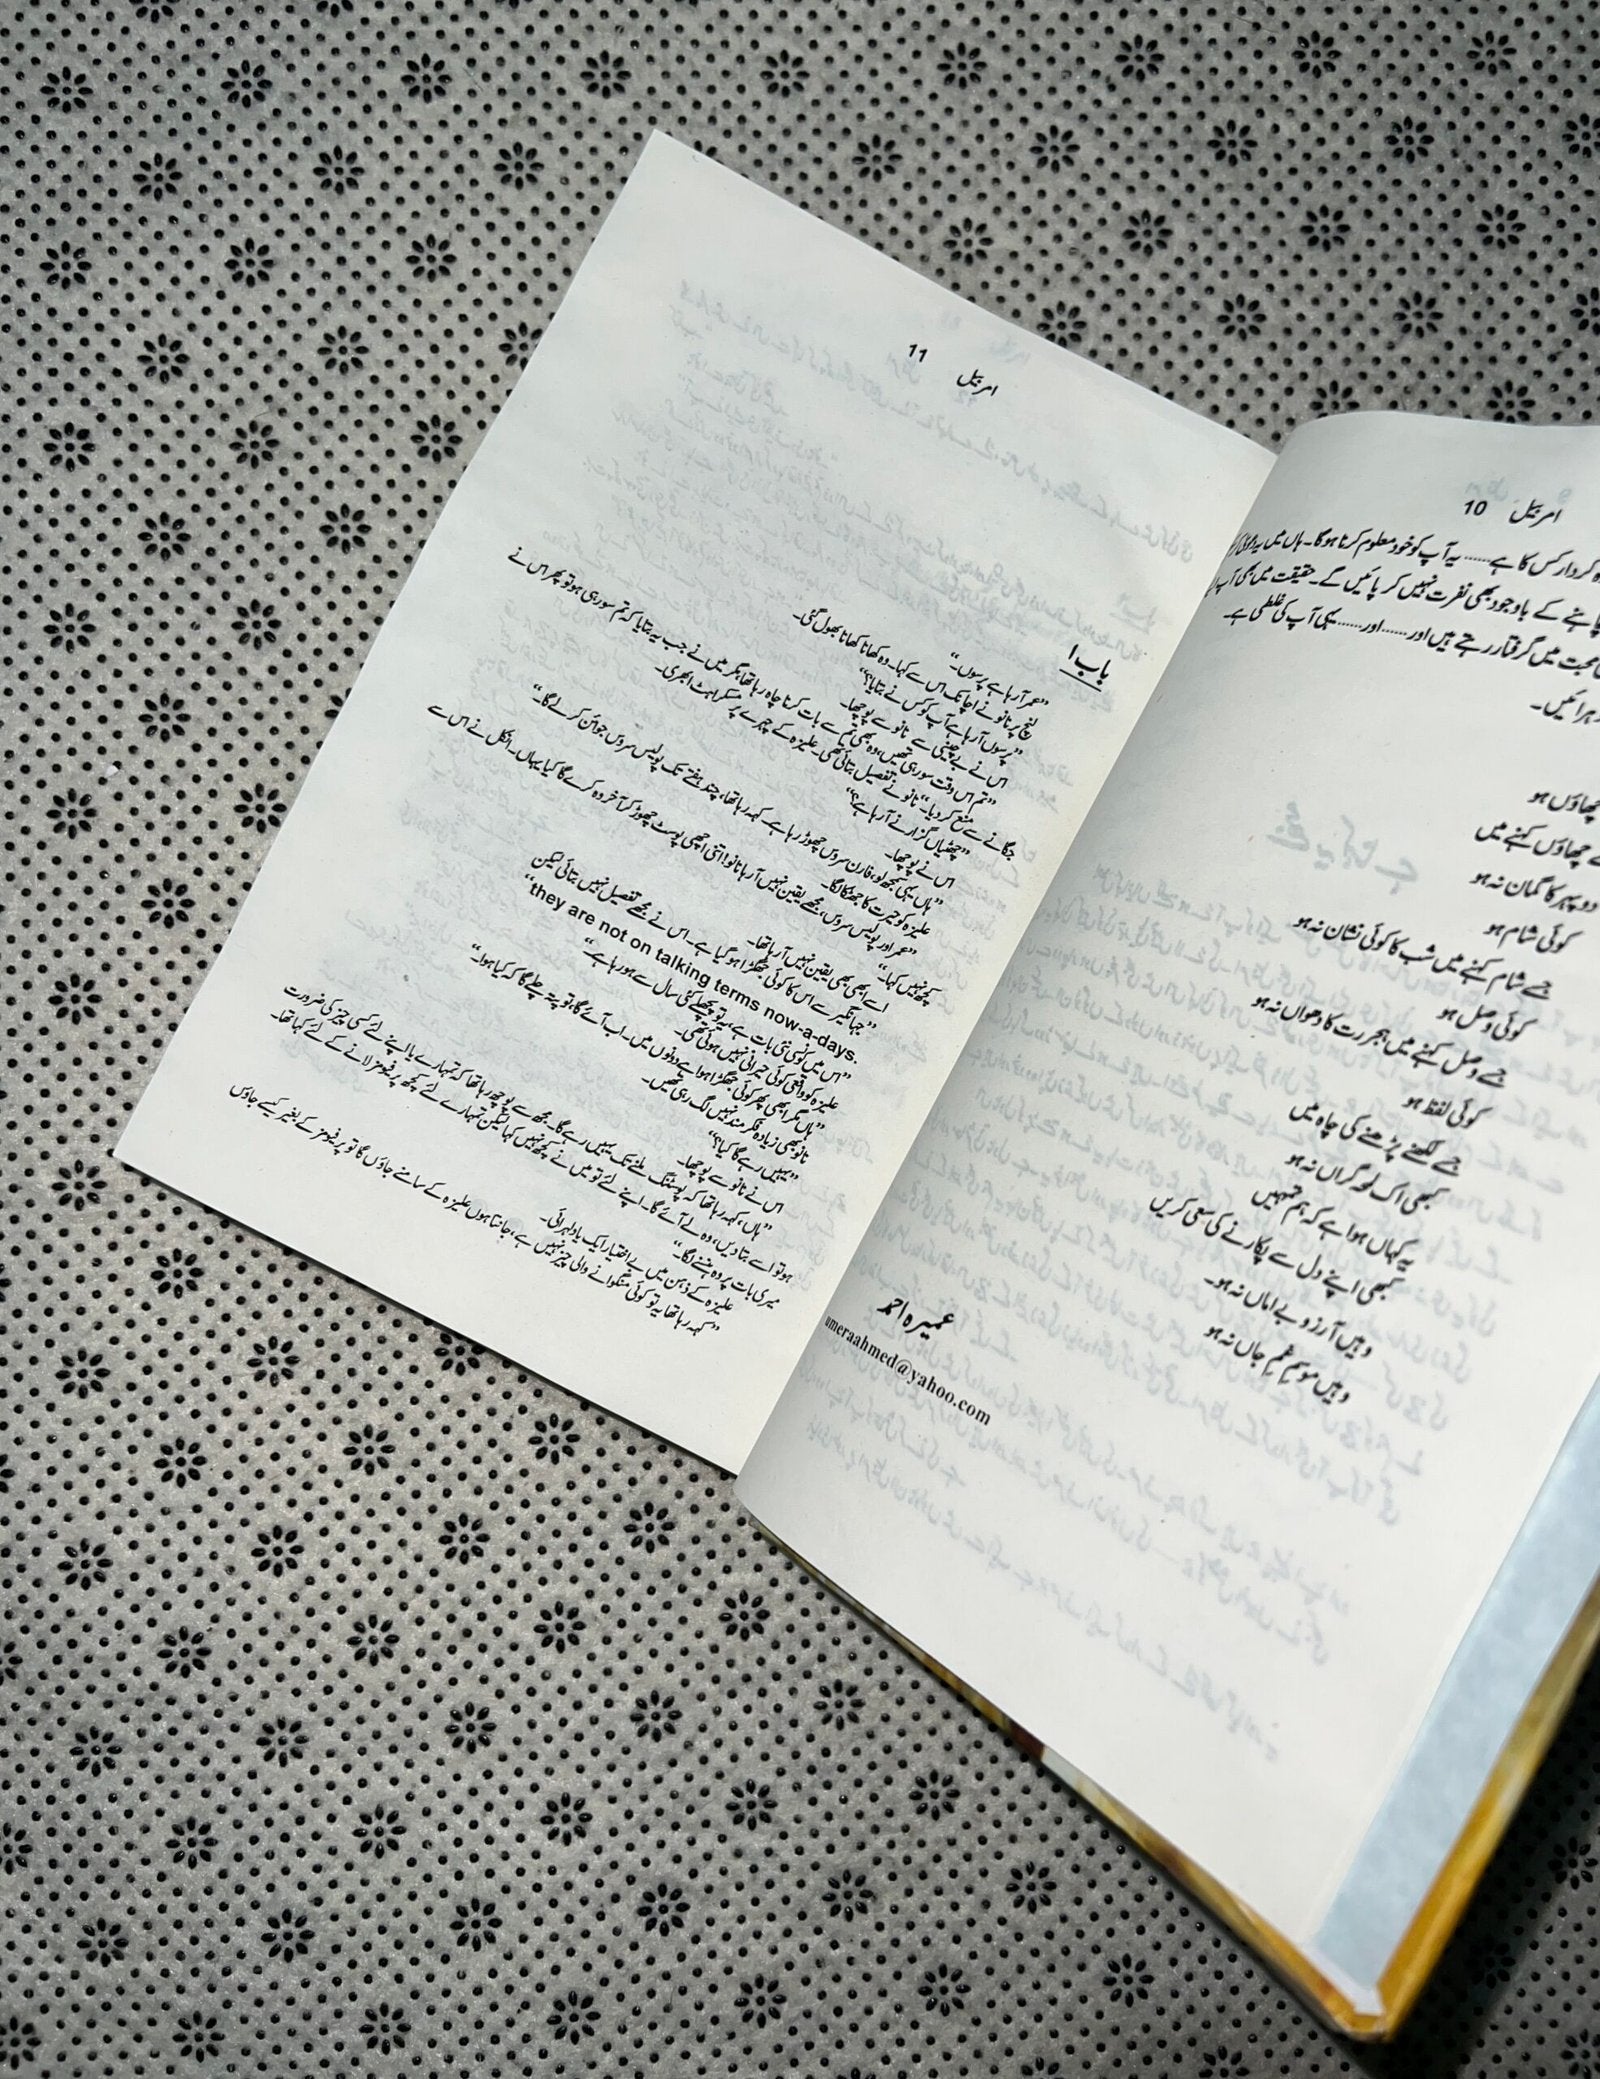 امربیل 10
کردار کس کا ہے...... یہ آپ کو خود معلوم کرنا ہوگا۔ ہاں میں یہ دعویٰ
چاہنے کے باوجود بھی نفرت نہیں کر پائیں گے۔ حقیقت میں بھی آپ
محبت میں گرفتار رہتے ہیں اور......اور...... یہی آپ کی غلطی ہے۔
چھاؤں ہو
چھاؤں کہنے میں
دوپہر کا گمان نہ ہو
کوئی شام ہو
جسے شام کہنے میں شب کا کوئی نشان نہ ہو
کوئی وصل ہو
جسے وصل کہنے میں ہجر رت کا دھواں نہ ہو
کوئی لفظ ہو
جسے لکھنے پڑھنے کی چاہ میں
کبھی اک لمحہ گراں نہ ہو
یہ کہاں ہوا ہے کہ ہم تمہیں
کبھی اپنے دل سے پکارنے کی سعی کریں
وہیں آرزو بے اماں نہ ہو۔
وہیں موسم غم جاں نہ ہو
عمیرہ احمد
umeraahmed@yahoo.com
امربیل 11
باب ۱
"عمر آ رہا ہے پرسوں۔"
لنچ پر نانو نے اچانک اس سے کہا۔ وہ کھانا کھانا بھول گئی۔
"پرسوں آ رہا ہے آپ کو کس نے بتایا؟"
اس نے بے چینی سے نانو سے پوچھا۔
"تم اس وقت سو رہی تھیں، وہ بھی تم سے بات کرنا چاہ رہا تھا مگر میں نے جب یہ بتایا کہ تم سو رہی ہو تو پھر اس نے
جگانے سے منع کر دیا۔" نانو نے تفصیل بتائی تھی۔ علیزہ کے چہرے پر مسکراہٹ ابھری۔
"چھٹیاں گزارنے آ رہا ہے؟"
اس نے پوچھا۔
"ہاں یہی سمجھ لو، فارن سروس چھوڑ رہا ہے۔ کہہ رہا تھا، چند ہفتے تک پولیس سروس جوائن کر لے گا۔"
علیزہ کو حیرت کا جھٹکا لگا۔
"عمر اور پولیس سروس، مجھے یقین نہیں آ رہا نانو! اتنی اچھی پوسٹ چھوڑ کر آخر وہ کرے گا کیا یہاں۔ انکل نے اس سے
کچھ نہیں کہا۔"
اسے ابھی بھی یقین نہیں آ رہا تھا۔
"جہانگیر سے اس کا کوئی جھگڑا ہو گیا ہے۔ اس نے مجھے تفصیل نہیں بتائی لیکن
they are not on talking terms now-a-days."
"اس میں کونسی نئی بات ہے، یہ تو پچھلے کئی سال سے ہو رہا ہے۔"
علیزہ کو واقعی کوئی حیرانی نہیں ہوئی تھی۔
"ہاں مگر ابھی پھر کوئی جھگڑا ہوا ہے دونوں میں۔ اب آئے گا، تو پتہ چلے گا کہ کیا ہوا۔"
نانو بھی زیادہ فکر مند نہیں لگ رہی تھیں۔
"یہیں رہے گا کیا؟"
اس نے نانو سے پوچھا۔
"ہاں، کہہ رہا تھا کہ پوسٹنگ ملنے تک یہیں رہے گا۔ مجھ سے پوچھ رہا تھا کہ تمہارے یا اپنے لئے کسی چیز کی ضرورت
ہو تو اسے بتا دیں، وہ لے آئے گا۔ اپنے لئے تو میں نے کچھ نہیں کہا لیکن تمہارے لئے کچھ پرفیومز لانے کے لئے کہا تھا۔
میری بات پر وہ ہنسنے لگا۔"
علیزہ کے ذہن میں بے اختیار ایک یاد لہرائی۔
"کہہ رہا تھا یہ تو کوئی منگوانے والی چیز نہیں ہے، جانتا ہوں علیزہ کے سامنے جاؤں گا تو پرفیومز کے بغیر کیسے جاؤں